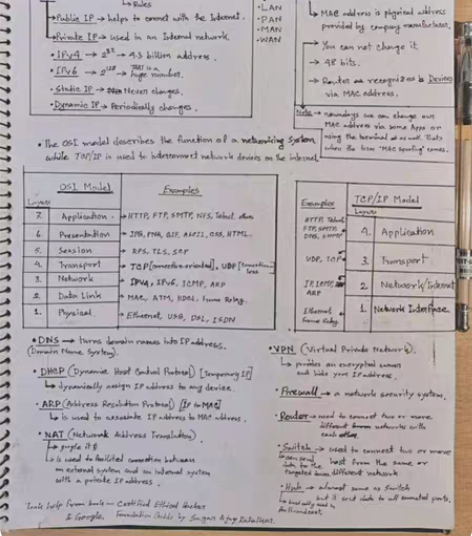 Rules
Public IP → helps to connect with the Internet.
Private IP → used in an Internal network.
• IPv4 → 2³² → 4.3 billion address.
• IPv6 → 2¹²⁸ → huge number.
• Static IP → Never changes.
• Dynamic IP → Periodically changes.
• LAN
• PAN
• MAN
• WAN
MAC address is physical address
provided by company manufacturer.
→ You can not change it
→ 48 bits.
→ Router recognizes Device
via MAC address.
Note → nowadays we can change our
MAC address via some Apps or
using the terminal as well. That's
when the term "MAC spoofing" comes.
• The OSI model describes the function of a networking system
while TCP/IP is used to interconnect network devices on the internet
OSI Model Examples
Layers
7. Application → HTTP, FTP, SMTP, NFS, Telnet,
6. Presentation → JPG, PNG, GIF, ASCII, CSS, HTML.
5. Session → RPS, TLS, SCP
4. Transport → TCP [connection-oriented], UDP [connection less
3. Network → IPV4, IPv6, ICMP, ARP
2. Data Link → MAC, ATM, HDLC, Frame Relay.
1. Physical. → Ethernet, USB, DSL, ISDN
Examples TCP/IP Model
Layers
HTTP, Telnet
FTP, SMTP
DNS,
4. Application
UDP, TCP
3. Transport
IP, ICMP
ARP
2. Network/Internet
Ethernet
Frame Relay
1. Network Interface
• DNS → turns domain names into IP address.
(Domain Name System).
• DHCP (Dynamic Host Control Protocol) [Temporary IP]
↳ dynamically assign IP address to any device.
• ARP (Address Resolution Protocol) [IP to MAC]
↳ is used to associate IP address to MAC address.
• NAT (Network Address Translation)
↳ is used to facilited connection between
an external system and an internal system
with a private IP address.
• VPN (Virtual Private Network).
↳ provides an encrypted
and hides your IP address.
• Firewall → a network security system.
• Router → used to connect two or more
different networks with
each other.
• Switch → used to connect two or more
host from the same or
different network
• Hub → almost same as Switch
but it sent data to all connected ports.
Took help from book → Certified Ethical Hacker
& Google. Foundation Guide by